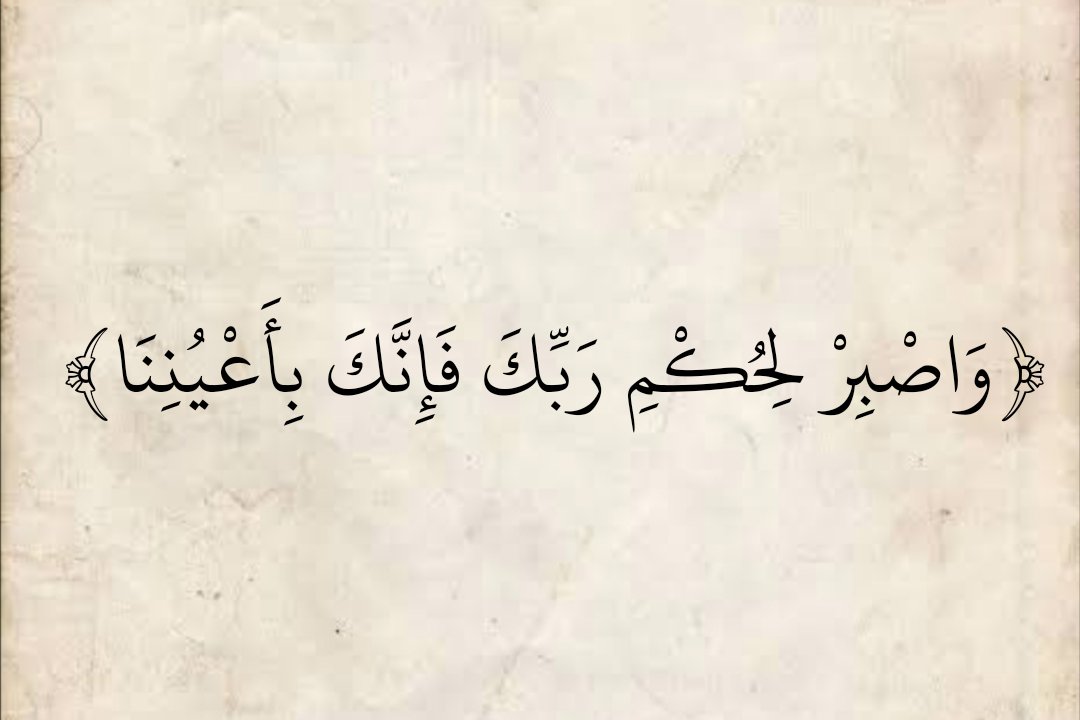 ﴿وَاصْبِرْ لِحُكْمِ رَبِّكَ فَإِنَّكَ بِأَعْيُنِنَا﴾